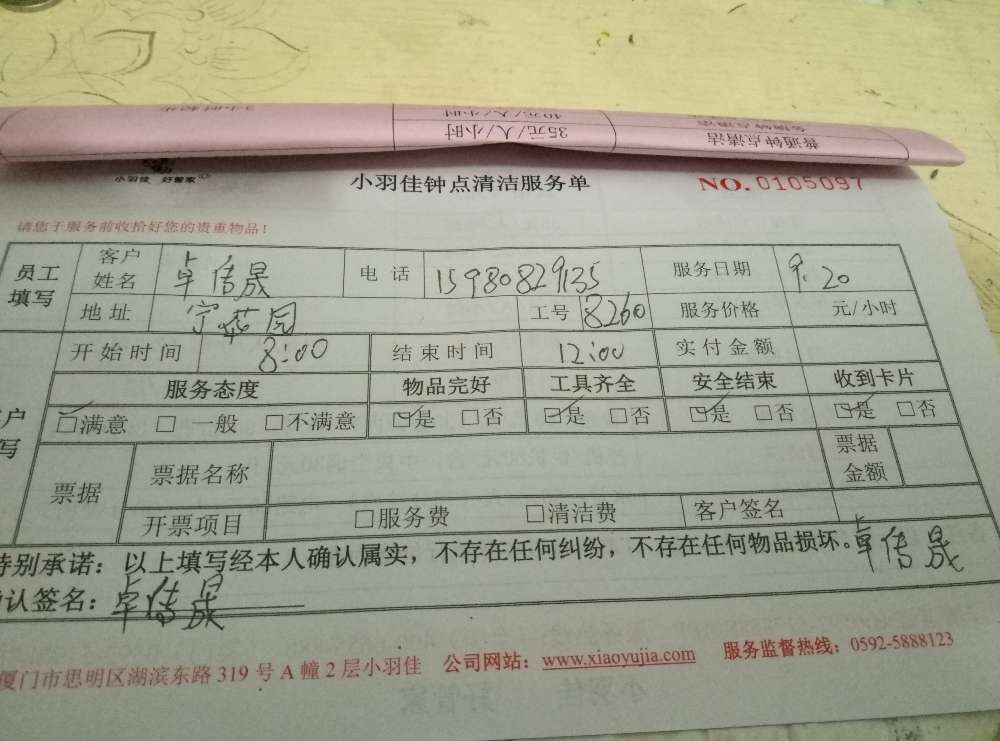 3小时起步
40元/人/小时
35元/人/小时
普通钟点清洁
小羽佳 好管家
小羽佳钟点清洁服务单
NO.0105097
请您于服务前收拾好您的贵重物品！
员工填写 客户姓名 卓信晟 电话 15980829135 服务日期 9.20
地址 宁花园 工号 8260 服务价格 元/小时
开始时间 8:00 结束时间 12:00 实付金额
服务态度 物品完好 工具齐全 安全结束 收到卡片
户写 □满意 □一般 □不满意 ☑是 □否 ☑是 □否 ☑是 □否 ☑是 □否
票据 票据名称 票据金额
开票项目 □服务费 □清洁费 客户签名
特别承诺：以上填写经本人确认属实，不存在任何纠纷，不存在任何物品损坏。卓信晟
认签名：卓信晟
厦门市思明区湖滨东路319号A幢2层小羽佳 公司网站：www.xiaoyujia.com 服务监督热线：0592-5888123